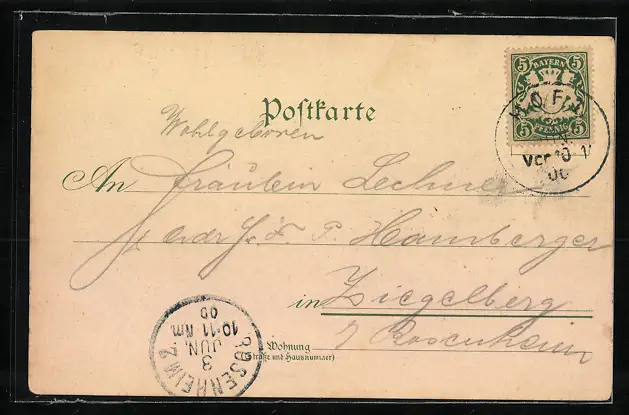 BAYERN
5 5
5 5
PFENNIG
HOF 2
Vor 10-11
00
Postkarte
Wohlgeboren
An Fräulein Lechner
Adr. F. P. Hamberger
in Ziegelberg
Rosenheim
Wohnung
(Straße und Hausnummer)
ROSENHEIM 2
3
JUN.
10-11 Nm
00